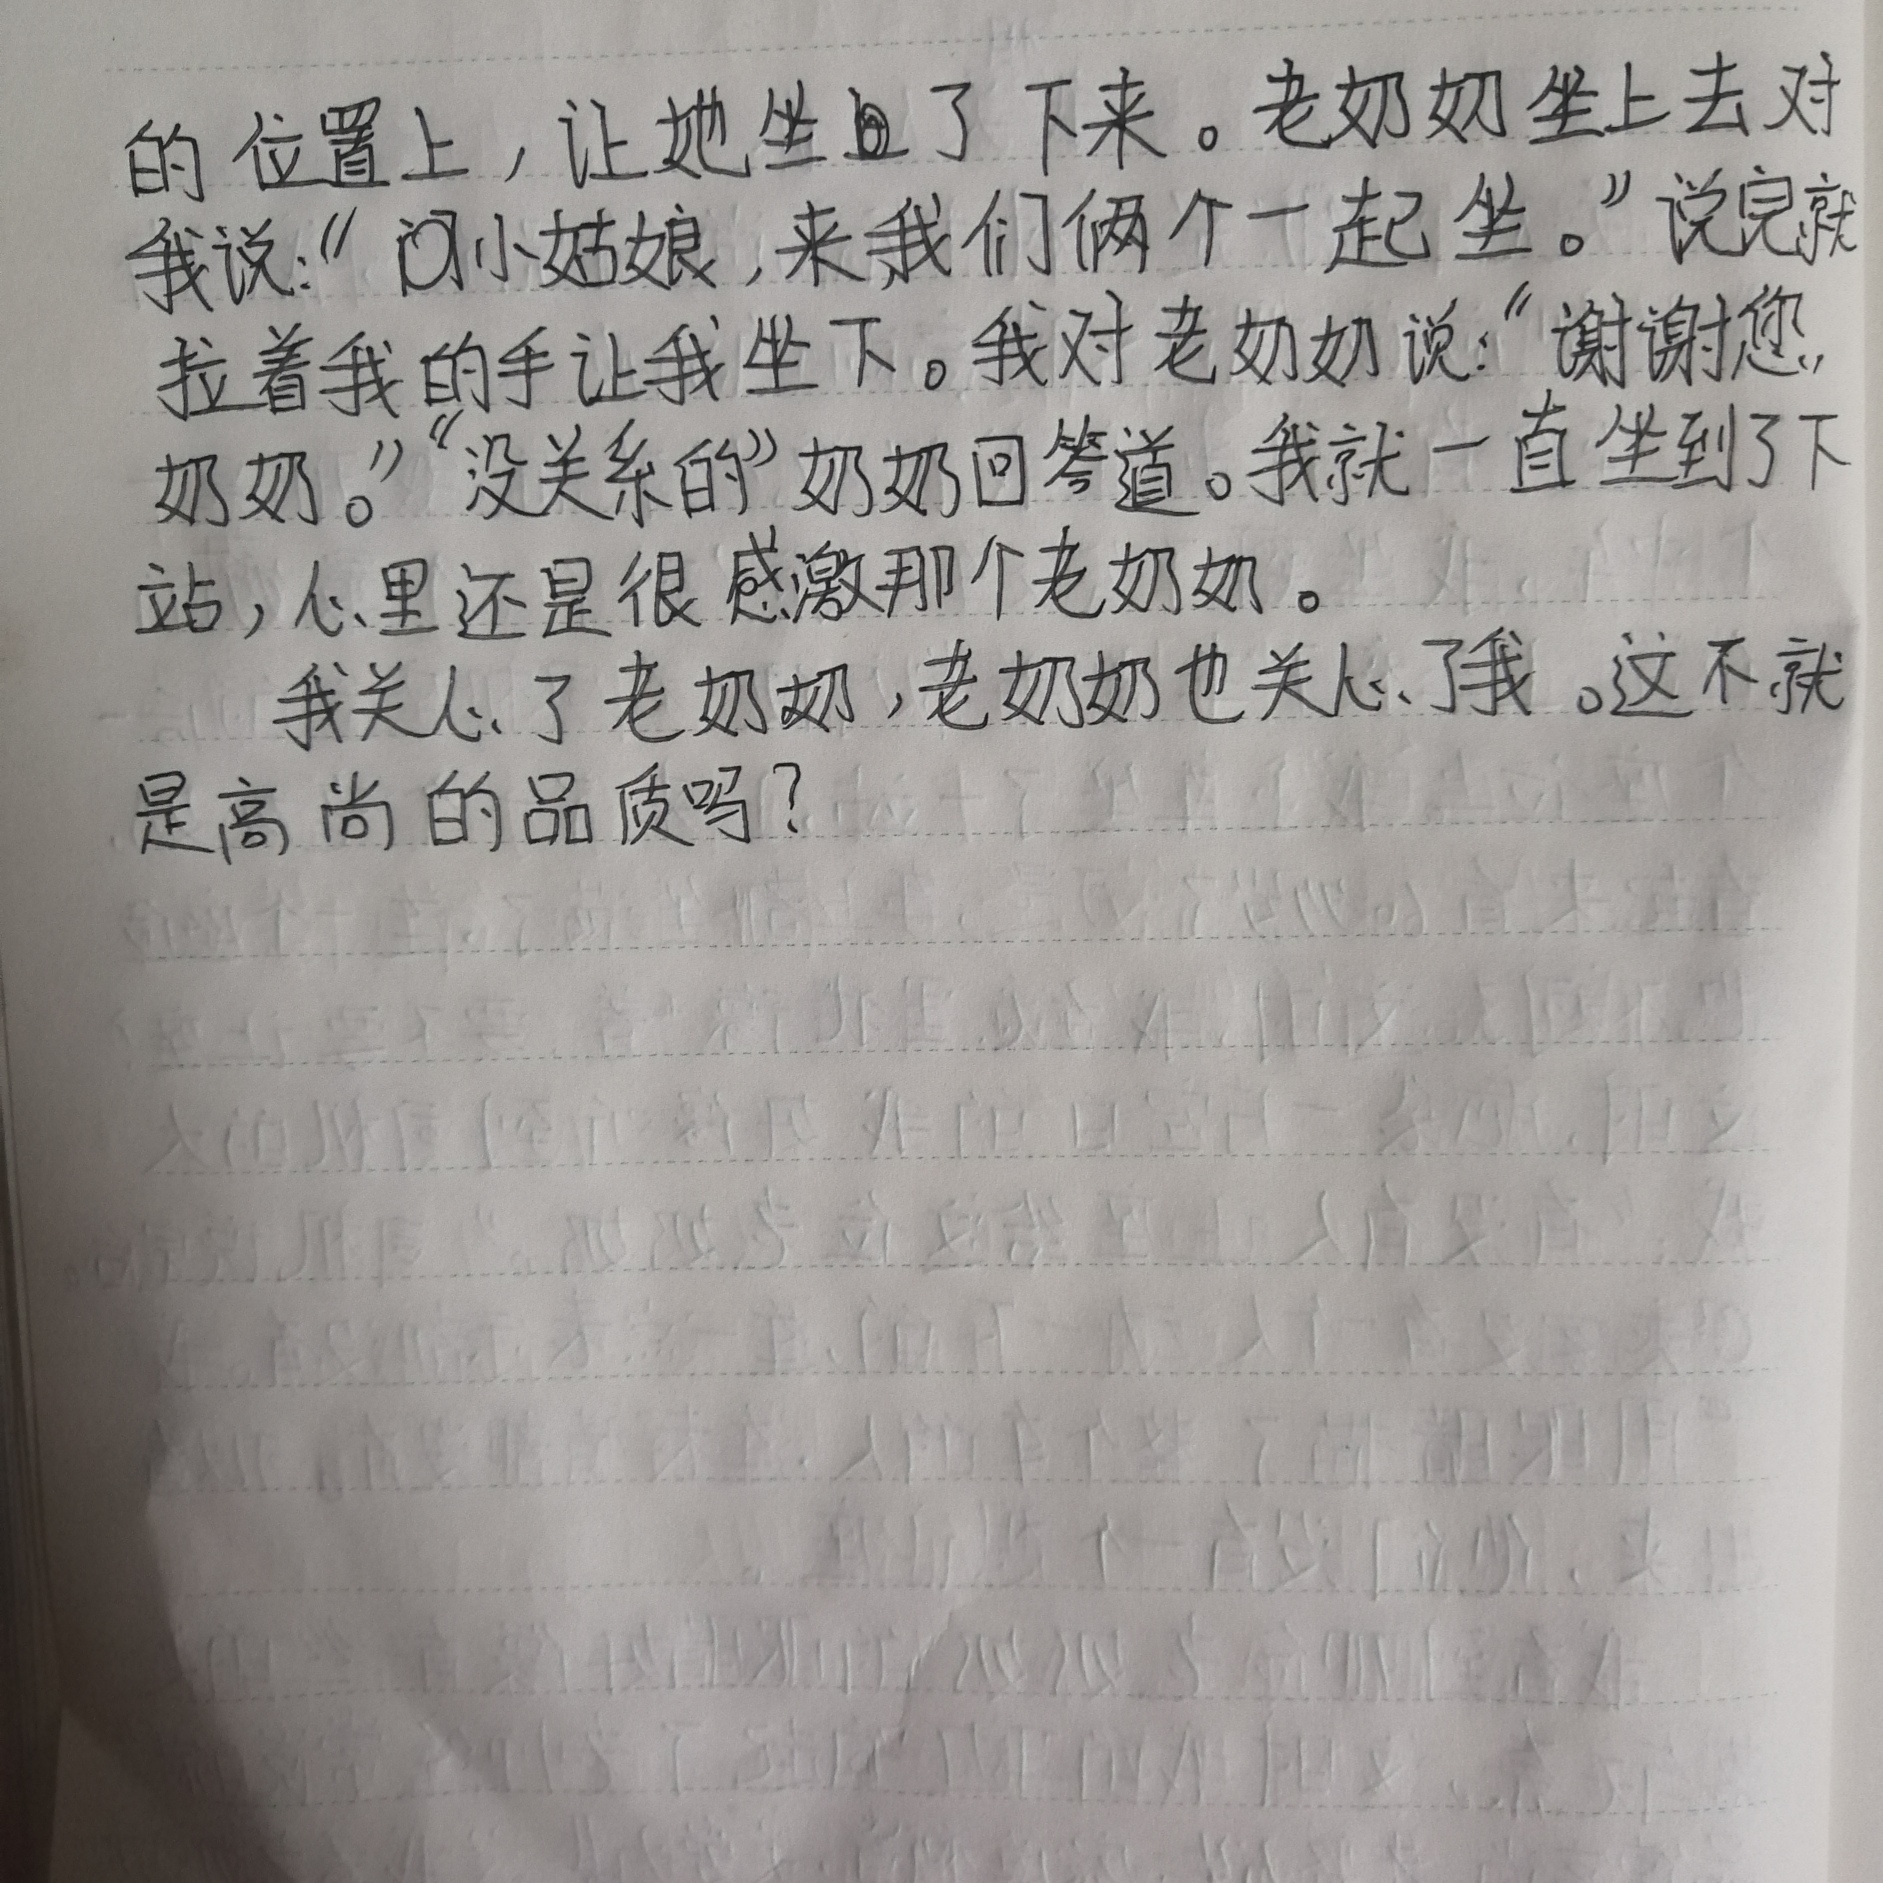 的位置上，让她坐了下来。老奶奶坐上去对
我说：“小姑娘，来我们俩个一起坐。”说完就
拉着我的手让我坐下。我对老奶奶说：“谢谢您，
奶奶。”“没关系的”奶奶回答道。我就一直坐到了下
站，心里还是很感激那个老奶奶。
我关心了老奶奶，老奶奶也关心了我。这不就
是高尚的品质吗？